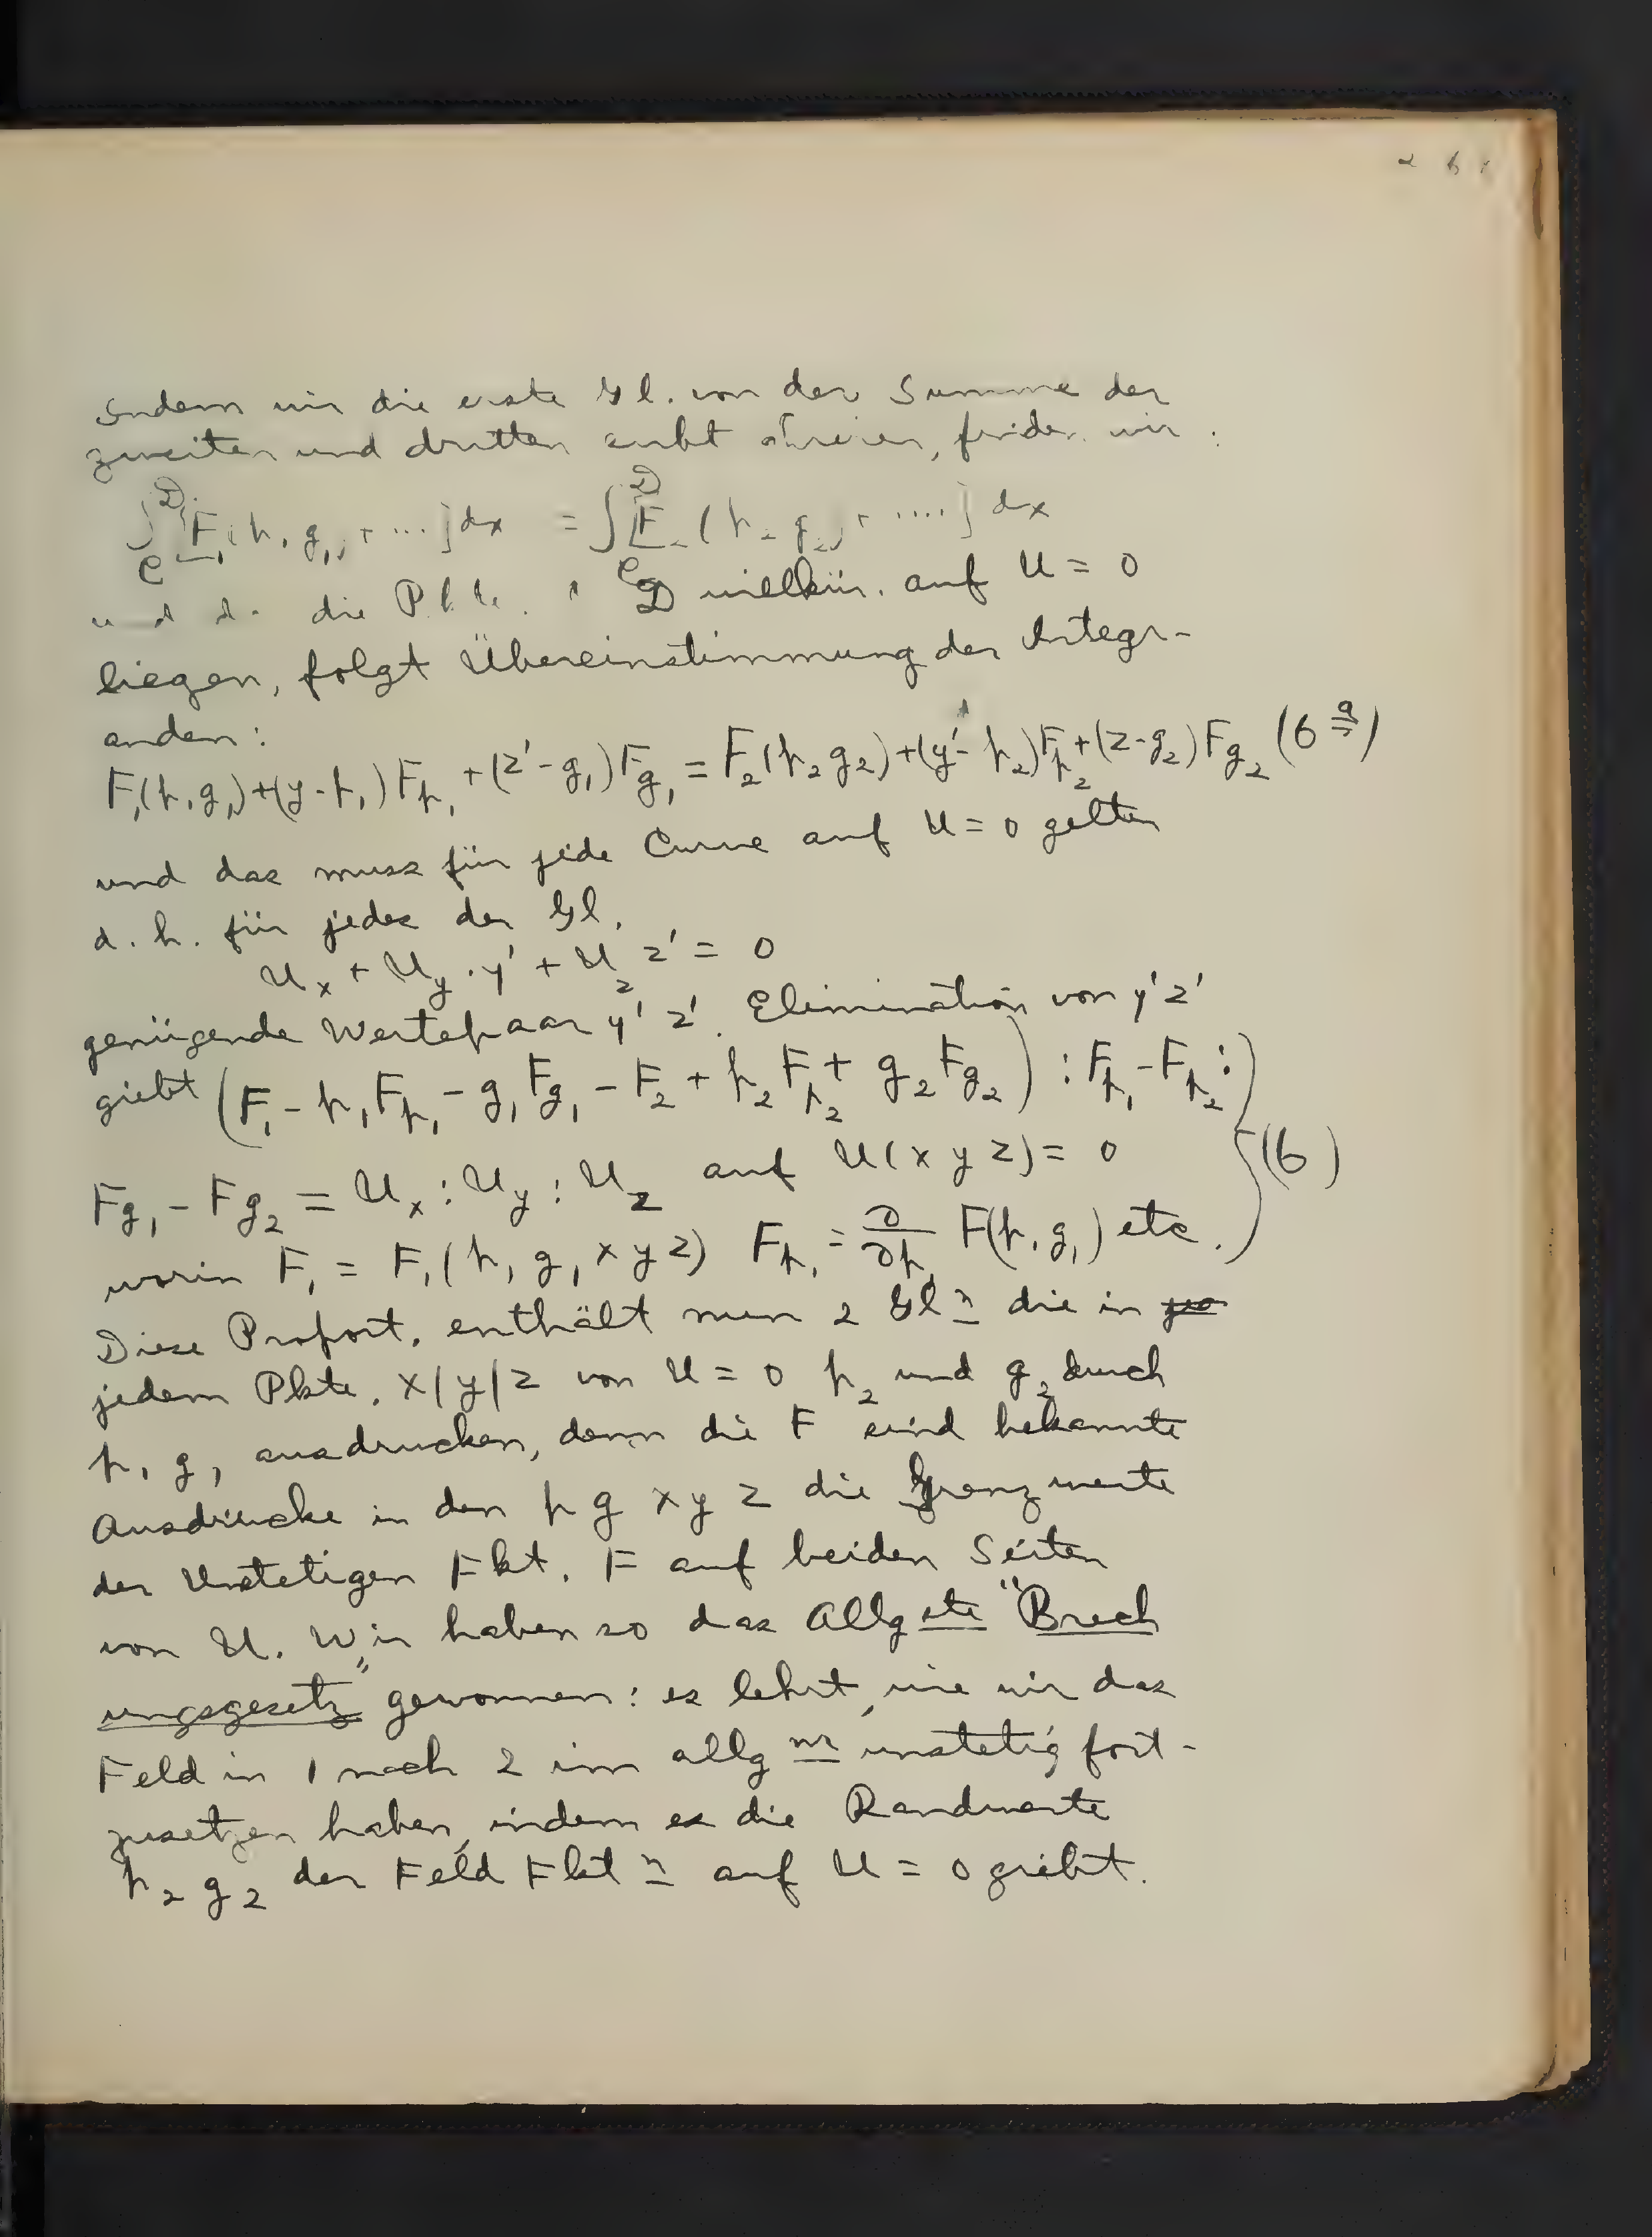 Indem wir die erste Gl. von der Summe der
zweiten und dritten subtrahieren, finden wir:
∫_C^D [F₁(p₁ g₁) + ....] dx = ∫_C^D [F₂(p₂ g₂) + ....] dx
und da die Pkte. D willkür. auf U = 0
liegen, folgt Übereinstimmung der Integr-
anden:
F₁(p₁g₁)+(y-p₁)F_{p₁}+(z'-g₁)F_{g₁} = F₂(p₂g₂)+(y'-p₂)F_{p₂}+(z-g₂)F_{g₂} (6a)
und das muss für jede Curve auf U = 0 gelten
d.h. für jedes der Gl.
U_x + U_y · y' + U_z z' = 0
genügende Wertepaar y' z'. Elimination von y' z'
giebt (F₁ - p₁F_{p₁} - g₁F_{g₁} - F₂ + p₂F_{p₂} + g₂F_{g₂}) : F_{p₁} - F_{p₂} :
F_{g₁} - F_{g₂} = U_x : U_y : U_z auf U(x y z) = 0 (6)
worin F₁ = F₁(p₁ g₁ x y z) F_{p₁} = ∂/∂p₁ F(p₁ g₁) etc.
Diese Proport. enthält nun 2 Gln die in
jedem Pkte. x/y/z von U = 0 p₂ und g₂ durch
p₁ g₁ ausdrucken, denn die F sind bekannte
Ausdrücke in den p g x y z die Grenzwerte
der Unstetigen Fkt. F auf beiden Seiten
von U. Wir haben so das Allgste "Brech
ungsgesetz" gewonnen: es lehrt, wie wir das
Feld in 1 nach 2 im allgm unstetig fort-
zusetzen haben, indem es die Randwerte
p₂ g₂ der Feld Fktn auf U = 0 giebt.